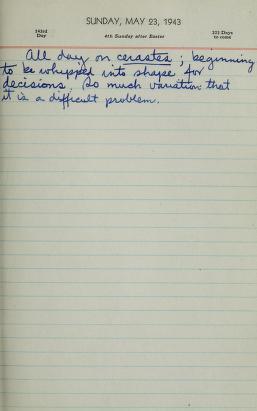 SUNDAY, MAY 23, 1943
143rd Day
4th Sunday after Easter
222 Days to come
All day on cerastes; beginning
to be whipped into shape for
decisions. So much variation that
it is a difficult problem.